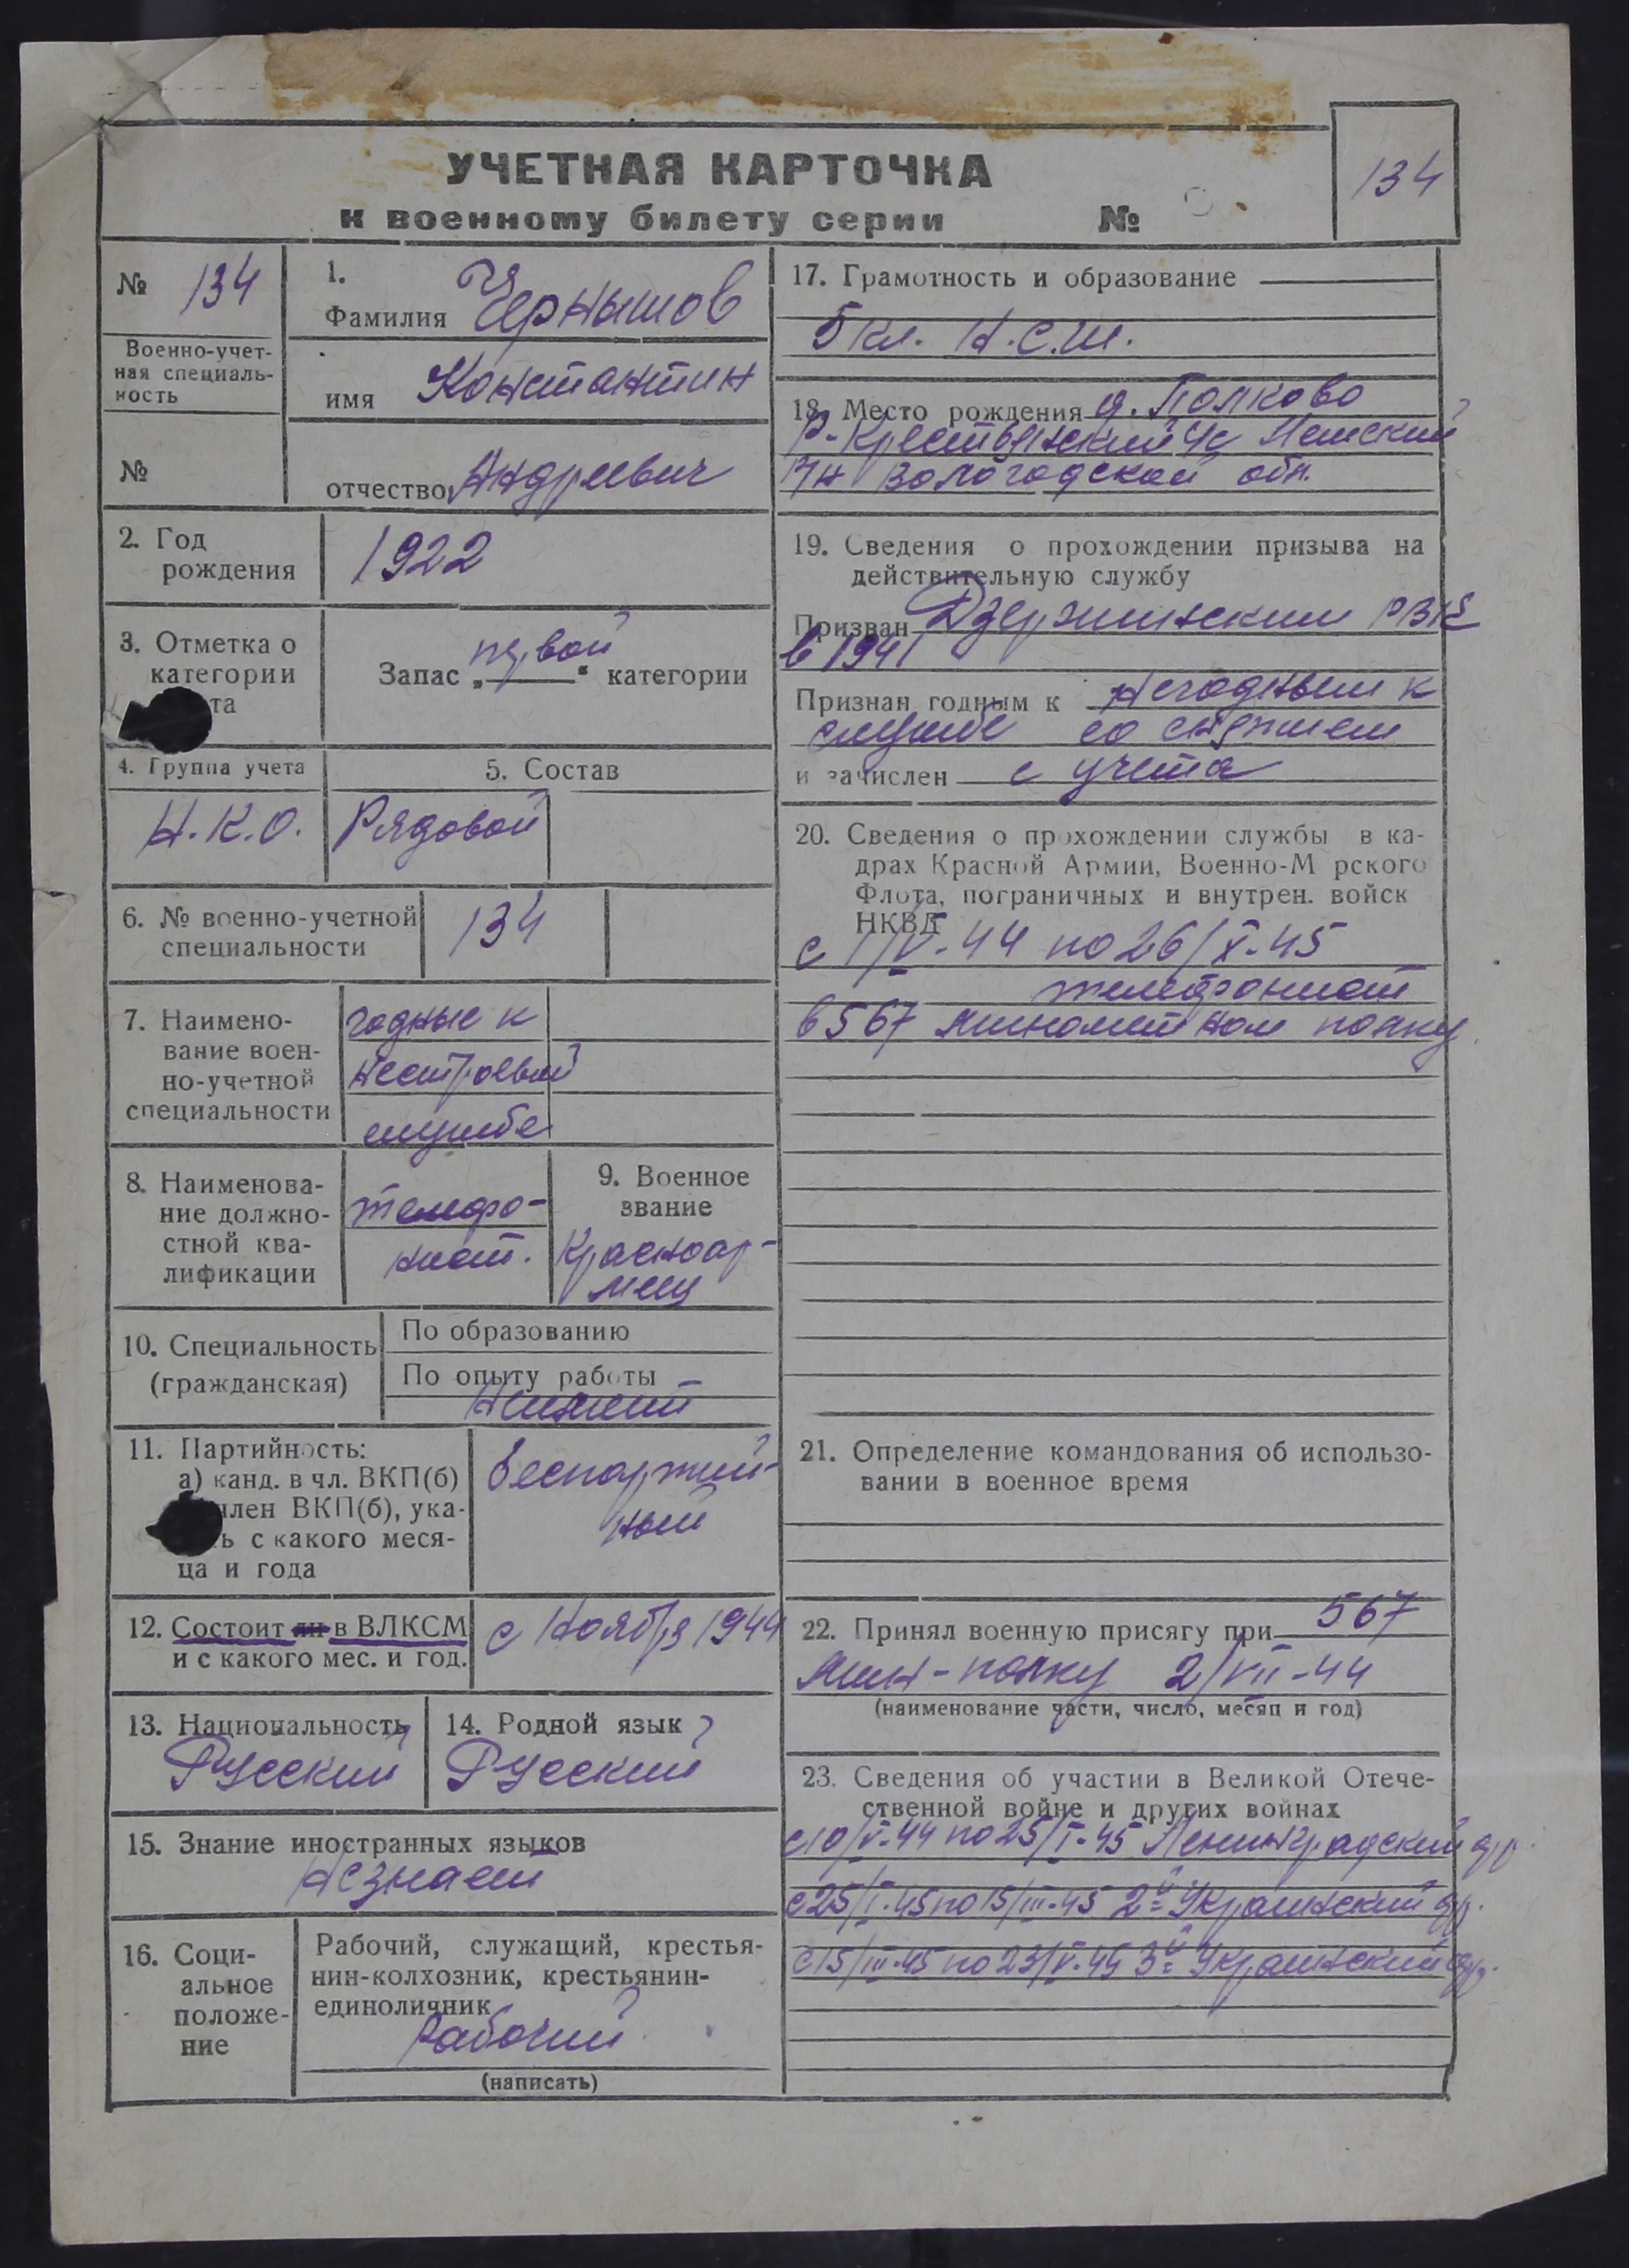 УЧЕТНАЯ КАРТОЧКА
к военному билету серии №
134
№ 134
Военно-учет-
ная специаль-
ность
№
1.
Фамилия Чернышов
имя Константин
отчество Андреевич
2. Год
рождения
1922
3. Отметка о
категории
та
Запас „первой“ категории
4. Группа учета
Н.К.О.
5. Состав
Рядовой
6. № военно-учетной
специальности
134
7. Наимено-
вание воен-
но-учетной
специальности
годные к
нестроевой
службе
8. Наименова-
ние должно-
стной ква-
лификации
телефо-
нист.
9. Военное
звание
Красноар-
меец
10. Специальность
(гражданская)
По образованию
По опыту работы
11. Партийность:
а) канд. в чл. ВКП(б)
член ВКП(б), ука-
ь с какого меся-
ца и года
Беспартий-
ный
12. Состоит ли в ВЛКСМ
и с какого мес. и год.
с Ноября 1944
13. Национальность
Русский
14. Родной язык
Русский
15. Знание иностранных языков
Не знает
16. Соци-
альное
положе-
ние
Рабочий, служащий, крестья-
нин-колхозник, крестьянин-
единоличник
Рабочий
(написать)
17. Грамотность и образование
5 кл. Н.С.Ш.
18. Место рождения д. Полково
Р-Крестьянский с/с
р/н Вологодской обл.
19. Сведения о прохождении призыва на
действительную службу
Призван Дзержинским РВК
в 1941
Признан годным к негодным к
службе со снятием
и зачислен с учета
20. Сведения о прохождении службы в ка-
драх Красной Армии, Военно-М рского
Флота, пограничных и внутрен. войск
НКВД
с 1/V-44 по 26/X-45
телефонист
в 567 минометном полку
21. Определение командования об использо-
вании в военное время
22. Принял военную присягу при 567
мин-полку 2/VII-44
(наименование части, число, месяц и год)
23. Сведения об участии в Великой Отече-
ственной войне и других войнах
с 10/V-44 по 25/I-45 Ленинградский фр.
с 25/I-45 по 15/III-45 2й Украинский фр.
с 15/III-45 по 23/V-45 3й Украинский фр.